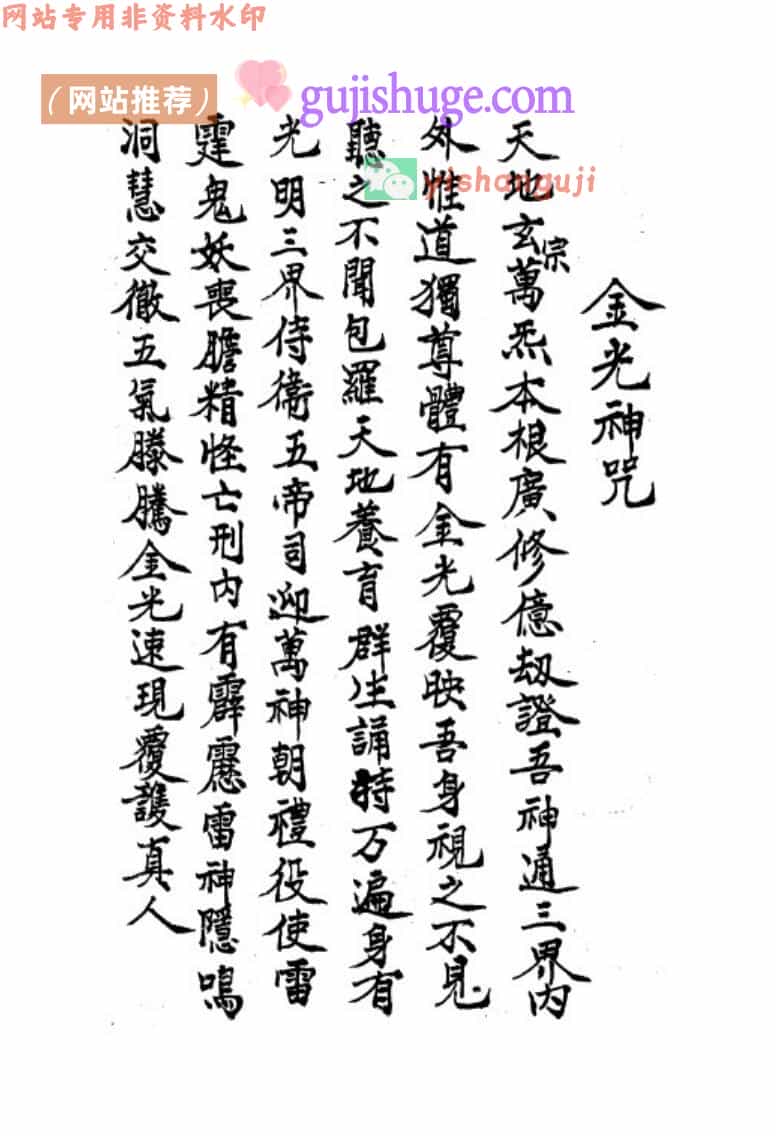 网站专用非资料水印
（网站推荐）
gujishuge.com
yishanguji
金光神咒
天地玄宗萬炁本根廣修億劫證吾神通三界內
外惟道獨尊體有金光覆映吾身視之不見
聽之不聞包羅天地養育群生誦持万遍身有
光明三界侍衛五帝司迎萬神朝禮役使雷
霆鬼妖喪膽精怪亡刑内有霹靂雷神隱鳴
洞慧交徹五氣滕騰金光速現覆護真人